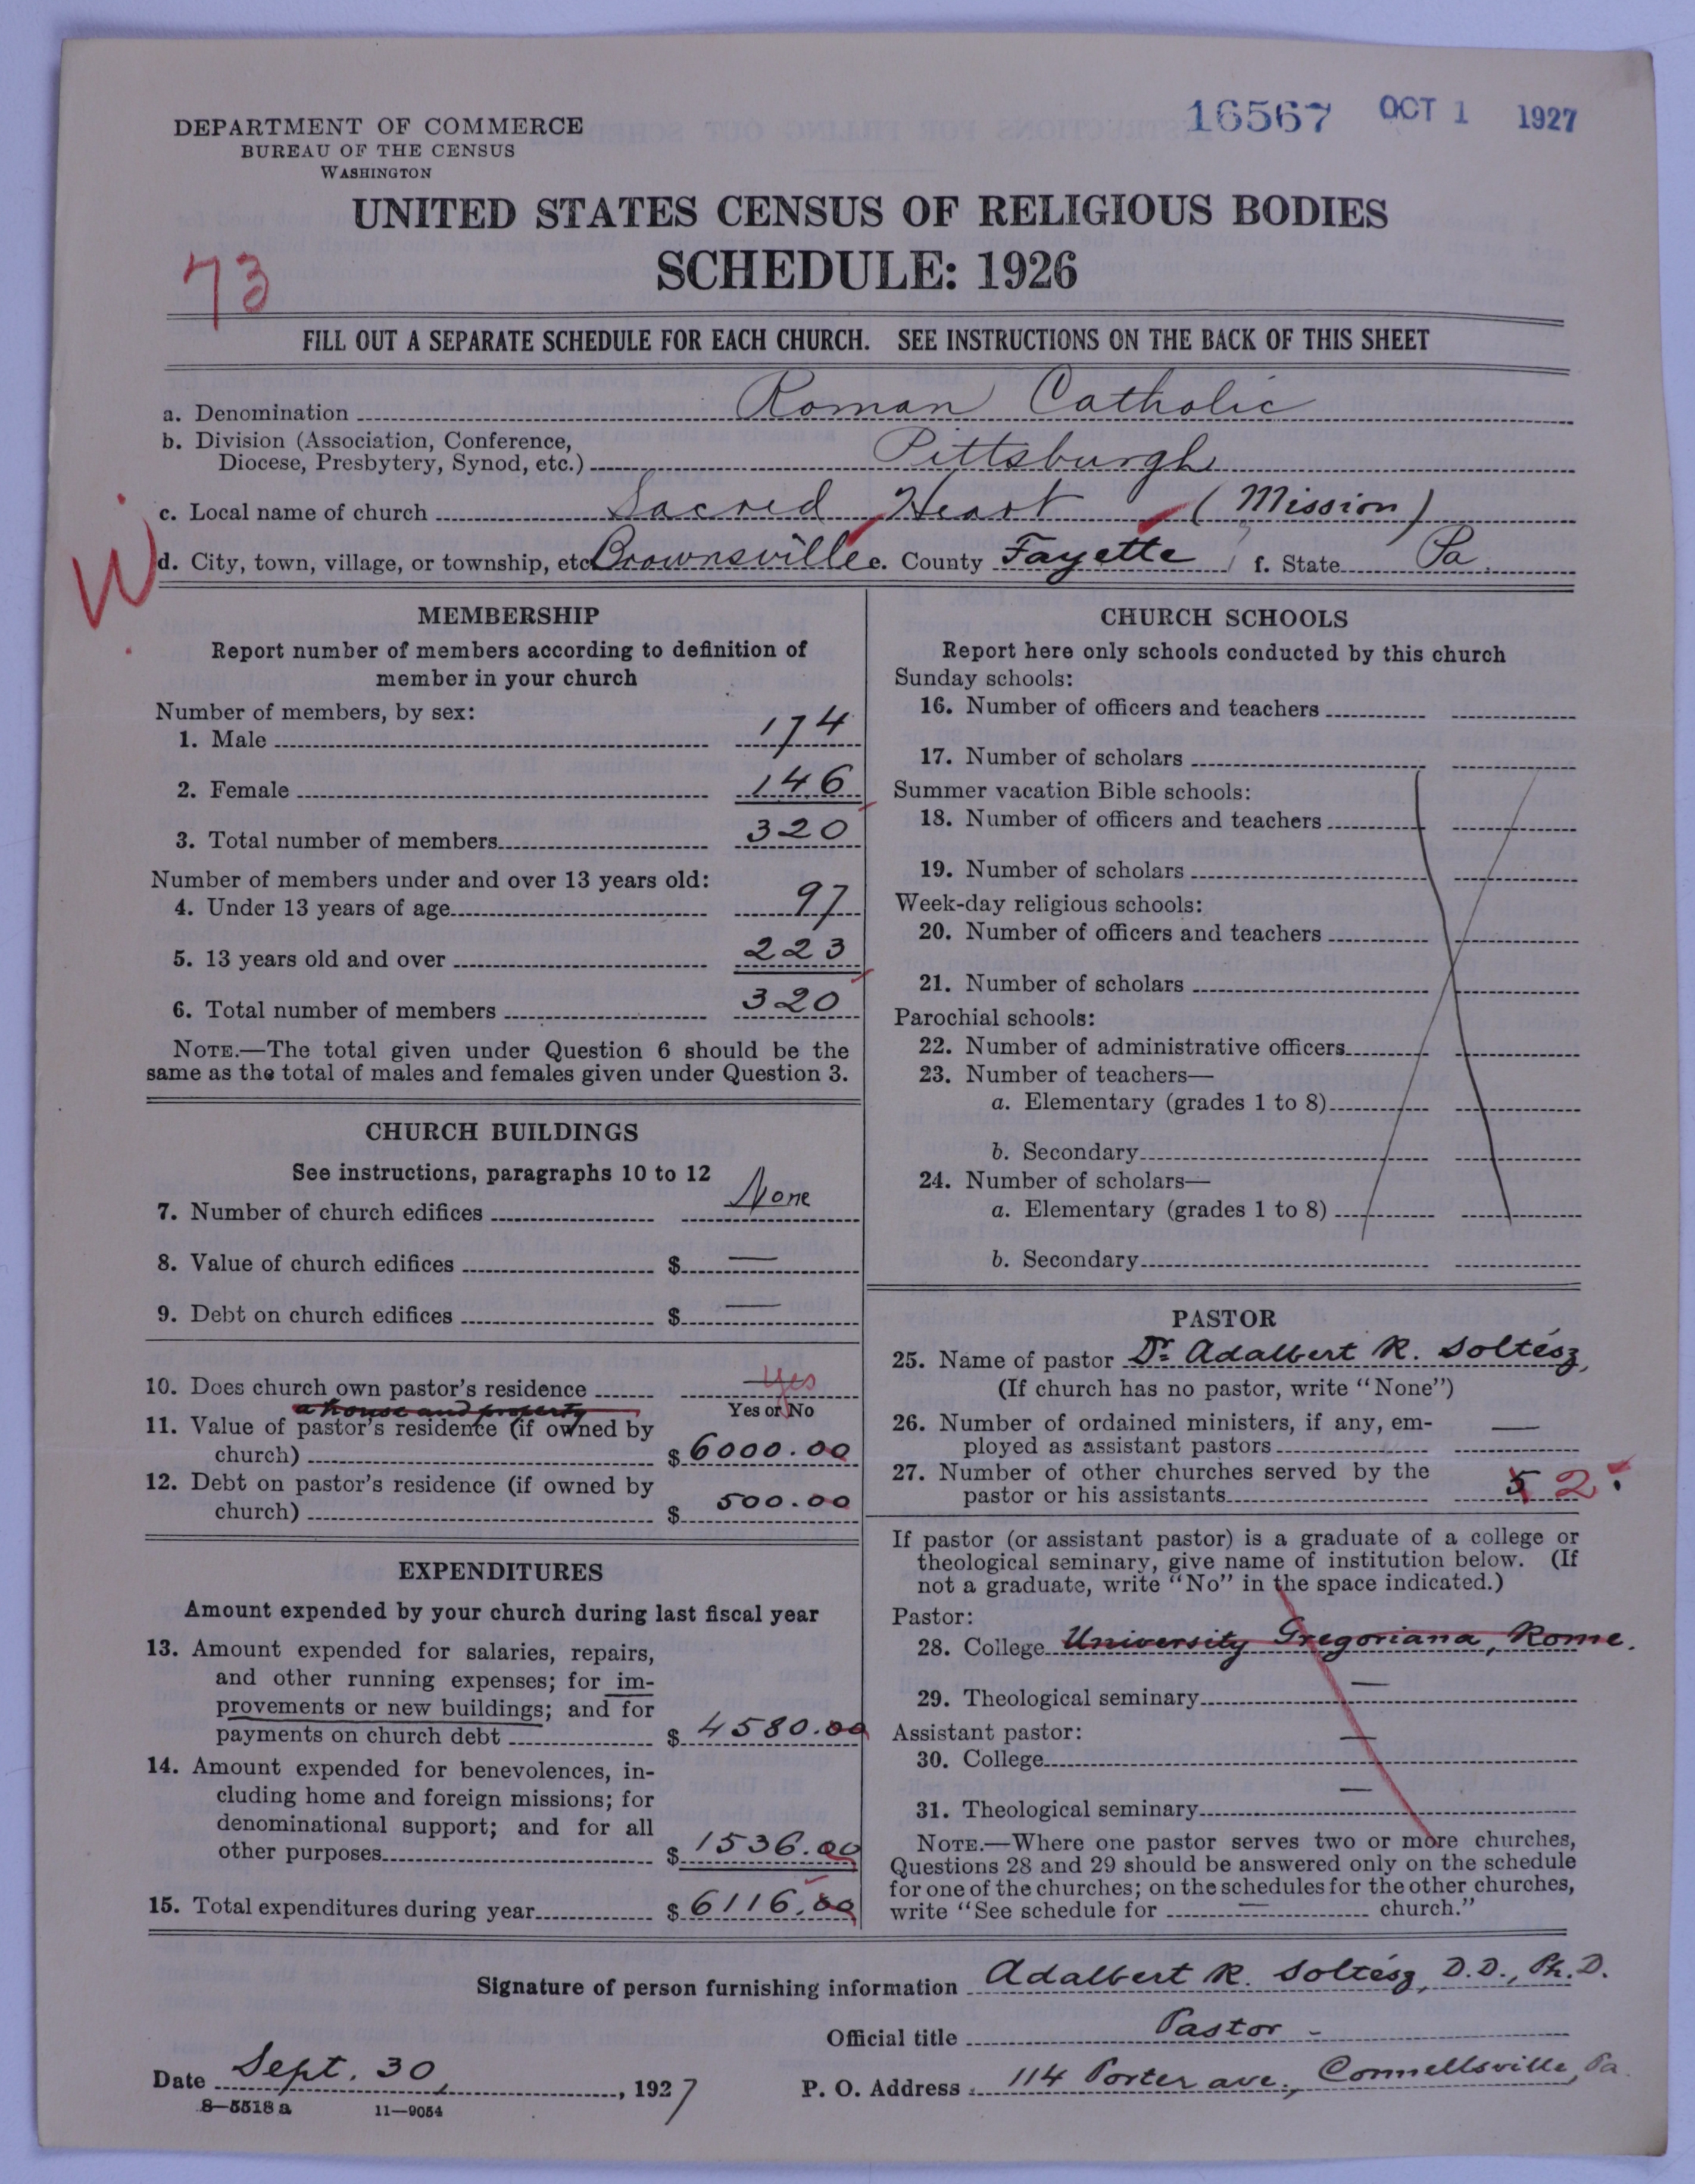 16567 OCT 1 1927
DEPARTMENT OF COMMERCE
BUREAU OF THE CENSUS
WASHINGTON
UNITED STATES CENSUS OF RELIGIOUS BODIES
SCHEDULE: 1926
73
FILL OUT A SEPARATE SCHEDULE FOR EACH CHURCH. SEE INSTRUCTIONS ON THE BACK OF THIS SHEET
a. Denomination Roman Catholic
b. Division (Association, Conference,
Diocese, Presbytery, Synod, etc.) Pittsburgh
c. Local name of church Sacred Heart (Mission)
W
d. City, town, village, or township, etc. Brownsville e. County Fayette f. State Pa.
MEMBERSHIP
Report number of members according to definition of
member in your church
Number of members, by sex:
1. Male 174
2. Female 146
3. Total number of members 320
Number of members under and over 13 years old:
4. Under 13 years of age 97
5. 13 years old and over 223
6. Total number of members 320
NOTE.—The total given under Question 6 should be the
same as the total of males and females given under Question 3.
CHURCH BUILDINGS
See instructions, paragraphs 10 to 12
7. Number of church edifices None
8. Value of church edifices $ —
9. Debt on church edifices $ —
10. Does church own pastor's residence yes
Yes or No
a house and property
11. Value of pastor's residence (if owned by
church) $ 6000.00
12. Debt on pastor's residence (if owned by
church) $ 500.00
EXPENDITURES
Amount expended by your church during last fiscal year
13. Amount expended for salaries, repairs,
and other running expenses; for im-
provements or new buildings; and for
payments on church debt $ 4580.00
14. Amount expended for benevolences, in-
cluding home and foreign missions; for
denominational support; and for all
other purposes $ 1536.00
15. Total expenditures during year $ 6116.00
CHURCH SCHOOLS
Report here only schools conducted by this church
Sunday schools:
16. Number of officers and teachers
17. Number of scholars
Summer vacation Bible schools:
18. Number of officers and teachers
19. Number of scholars
Week-day religious schools:
20. Number of officers and teachers
21. Number of scholars
Parochial schools:
22. Number of administrative officers
23. Number of teachers—
a. Elementary (grades 1 to 8)
b. Secondary
24. Number of scholars—
a. Elementary (grades 1 to 8)
b. Secondary
PASTOR
25. Name of pastor Dr. Adalbert R. Soltész,
(If church has no pastor, write "None")
26. Number of ordained ministers, if any, em-
ployed as assistant pastors —
27. Number of other churches served by the
pastor or his assistants 5 2
If pastor (or assistant pastor) is a graduate of a college or
theological seminary, give name of institution below. (If
not a graduate, write "No" in the space indicated.)
Pastor:
28. College University Gregoriana, Rome.
29. Theological seminary —
Assistant pastor:
30. College —
31. Theological seminary —
NOTE.—Where one pastor serves two or more churches,
Questions 28 and 29 should be answered only on the schedule
for one of the churches; on the schedules for the other churches,
write "See schedule for — church."
Signature of person furnishing information Adalbert R. Soltész, D.D., Ph.D.
Official title Pastor -
Date Sept. 30, 1927 P. O. Address 114 Porter ave., Connellsville, Pa.
8—5518 a 11—9054